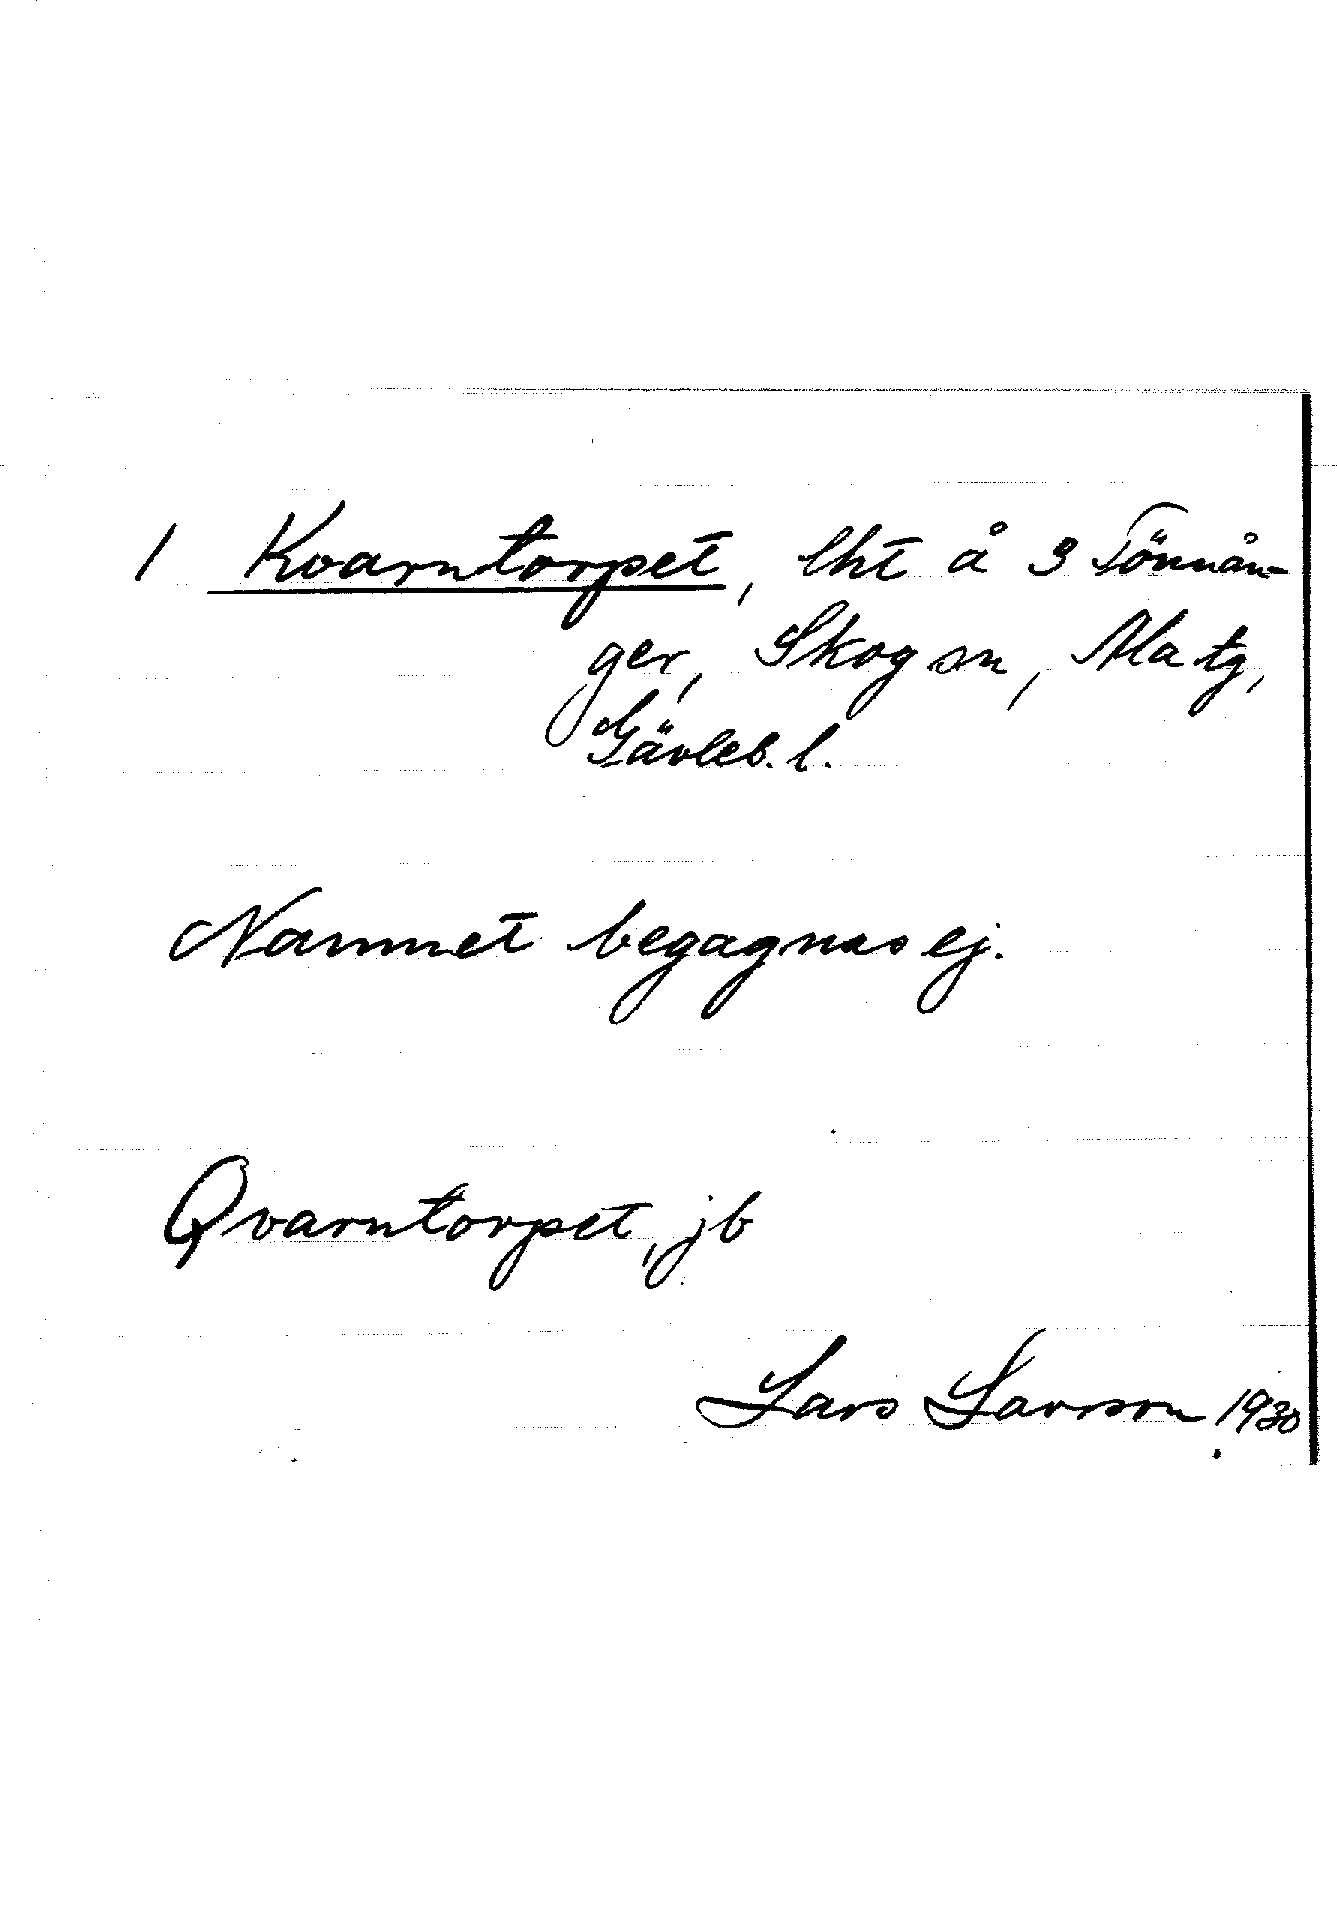 1 Kvarntorpet, lht å 3 Tönnån-
ger, Skog sn, Ala tg,
Gävleb. l.
Namnet begagnas ej.
Qvarntorpet, jb
Lars Larsson 1930